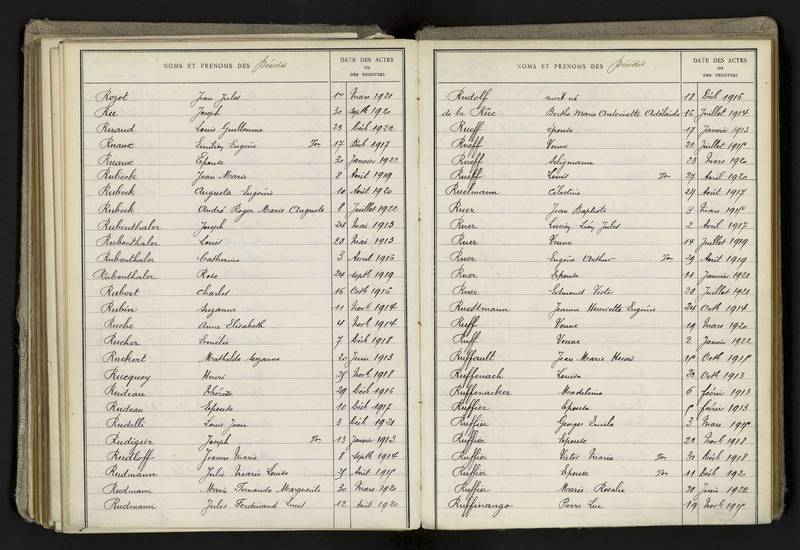 NOMS ET PRENOMS DES Décédés
DATE DES ACTES
OU
DES REGISTRES
Rozot Jean Jules 1er Mars 1921
Ru Joseph 30 Septb 1920
Ruaud Louis Guillaume 23 Déb 1922
Ruaux Emilien Eugène Ton 17 Déb 1917
Ruaux Epouse 30 Janvier 1922
Rubeck Jean Marie 8 Août 1919
Rubeck Augusta Eugénie 10 Août 1920
Rubeck André Roger Marie Auguste 8 Juillet 1922
Rubenthaler Joseph 24 Mai 1913
Rubenthaler Louis 28 Mai 1913
Rubenthaler Catherine 3 Avril 1916
Rubenthaler Rose 24 Septb 1919
Rubert Charles 15 Octb 1916
Rubin Suzanne 11 Novb 1914
Ruche Anne Elisabeth 4 Novb 1914
Rucher Emélie 7 Déb 1918
Ruckert Mathilde Suzanne 20 Juin 1913
Rucquoy Henri Novb 1918
Rudeau Thérèse 29 Déb 1916
Rudeau Epouse 10 Déb 1917
Rudelli Louis Jean 3 Déb 1921
Rudiger Joseph Ton 13 Janvier 1913
Rudloff Jeanne Marie 8 Septb 1914
Rudmann Julie Marie Louise Août
Rudmann Marie Fernande Marguerite 30 Mars 1920
Rudmann Jules Ferdinand Louis 12 Août 1920
NOMS ET PRENOMS DES Décédés
DATE DES ACTES
OU
DES REGISTRES
Rudolf mort né 18 Déb 1916
de la Rüe Berthe Marie Antoinette Adélaïde 16 Juillet 1914
Rueff épouse 17 Janvier 1913
Rueff Veuve 22 Juillet
Rueff Seligmann 23 Mars 1920
Rueff Louis Ton 27 Avril 1920
Ruelmann Célestine 27 Août 1917
Ruer Jean Baptiste 3 Mars
Ruer Lucien Léon Jules 2 Avril 1917
Ruer Veuve 14 Juillet 1919
Ruer Eugène Arthur Ton 29 Août 1919
Ruer Epouse 11 Janvier 1921
Ruer Edmond Victor 28 Juillet 1921
Ruestmann Jeanne Henriette Eugénie 24 Octb 1914
Ruff Veuve 19 Mars 1920
Ruff Veuve 2 Janvier 1922
Ruffault Jean Marie Hervé Octb
Ruffenach Louise 21 Octb 1913
Ruffenacker Madeleine 6 février 1913
Ruffier Epouse février 1913
Ruffier Georges Emile 3 Mars
Ruffier Epouse 23 Novb 1918
Ruffier Victor Marie Ton 31 Déb 1918
Ruffier Epouse Ton 11 Déb 1920
Ruffier Marie Rosalie 28 Juin 1922
Ruffinango Pierre Luc 19 Novb